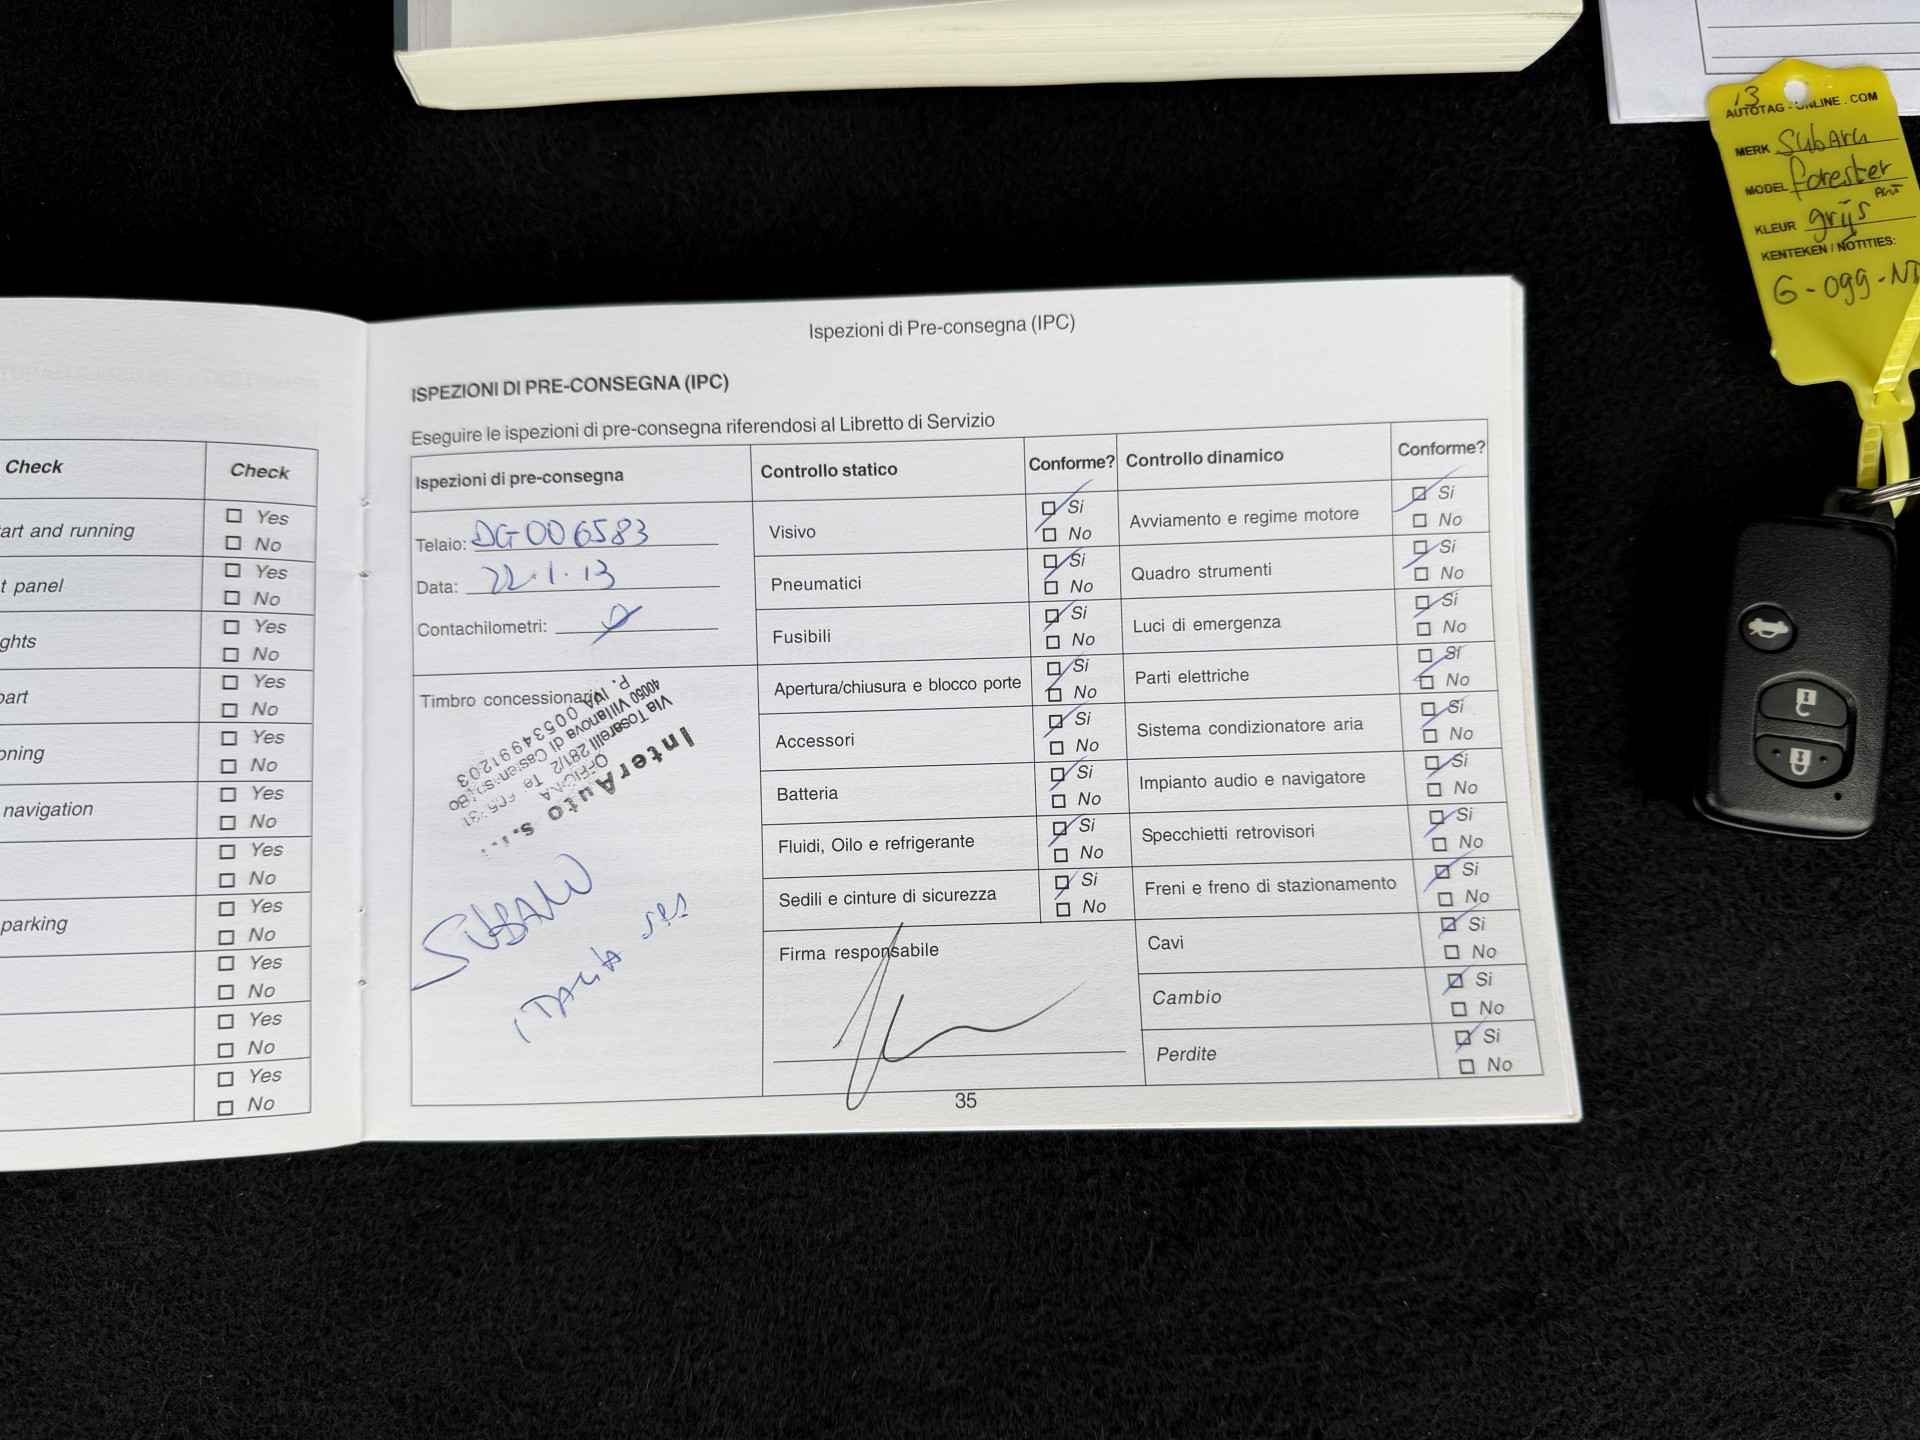 Ispezioni di Pre-consegna (IPC)
ISPEZIONI DI PRE-CONSEGNA (IPC)
Eseguire le ispezioni di pre-consegna riferendosi al Libretto di Servizio
Ispezioni di pre-consegna
Telaio: DG006583
Data: 22.1.13
Contachilometri:
Timbro concessionario
InterAuto
OFFICINA
Via Tosarelli 281/2
40050 Villanova di
P. IVA 00534991203
SUBARU
ITALIA SPA
Controllo statico Conforme?
Visivo Si
No
Pneumatici Si
No
Fusibili Si
No
Apertura/chiusura e blocco porte Si
No
Accessori Si
No
Batteria Si
No
Fluidi, Oilo e refrigerante Si
No
Sedili e cinture di sicurezza Si
No
Firma responsabile
Controllo dinamico Conforme?
Avviamento e regime motore Si
No
Quadro strumenti Si
No
Luci di emergenza Si
No
Parti elettriche Si
No
Sistema condizionatore aria Si
No
Impianto audio e navigatore Si
No
Specchietti retrovisori Si
No
Freni e freno di stazionamento Si
No
Cavi Si
No
Cambio Si
No
Perdite Si
No
35
Check Check
art and running Yes
No
t panel Yes
No
ghts Yes
No
part Yes
No
oning Yes
No
navigation Yes
No
Yes
No
parking Yes
No
Yes
No
Yes
No
Yes
No
13
AUTOTAG-ONLINE.COM
MERK Subaru
MODEL forester
KLEUR grijs
KENTEKEN / NOTITIES:
G-099-N